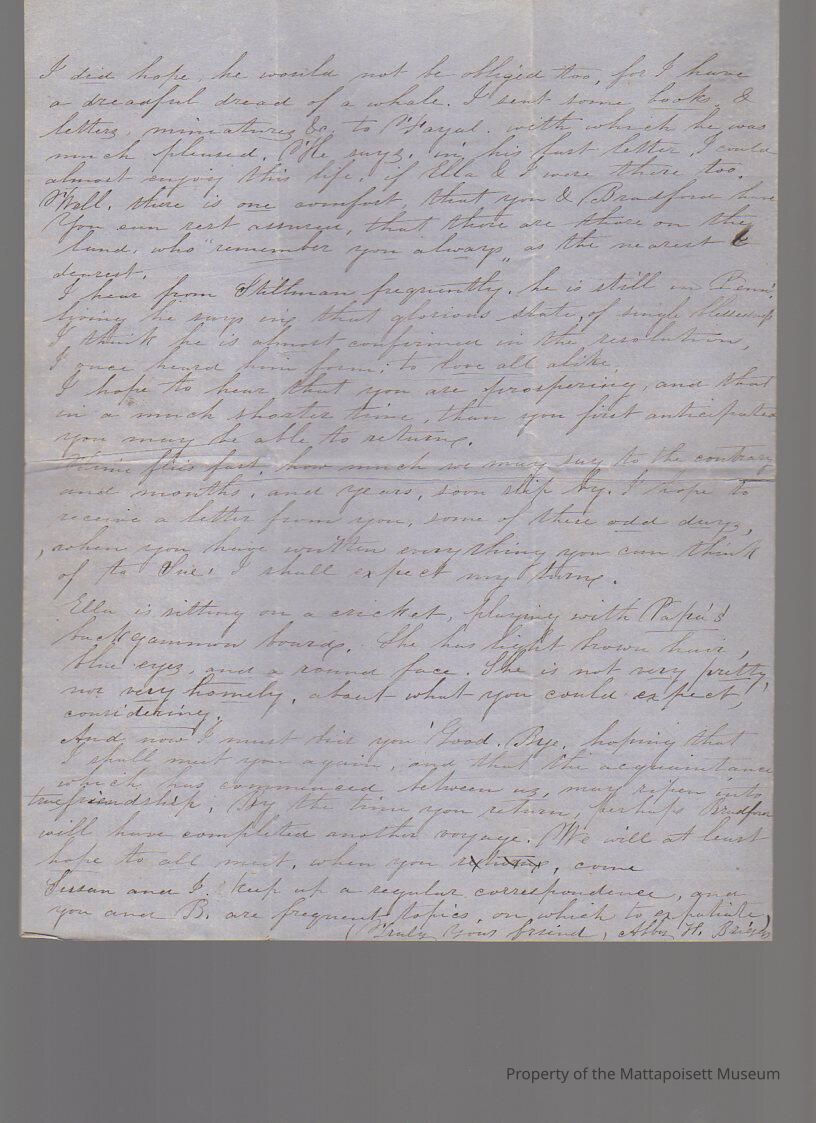 I did hope, he would not be obliged too, for I have
a dreadful dread of a whale. I sent some books, &
letters, miniatures &c. to Fayal. with which he was
much pleased. He says, in his last letter, I could
almost enjoy this life, if Ella & I were there too.
Well. there is one comfort, that you & Bradford have
You can rest assured, that there are those on the
land, who "remember you always" as the nearest &
dearest.
I hear from Stillman frequently. he is still in Penn.
living he says in that glorious state, of single blessedness
I think he is almost confirmed in the resolution,
I once heard him form; to love all alike.
I hope to hear that you are prospering, and that
in a much shorter time, than you first anticipated
you may be able to return.
Time flies fast, how much we may say to the contrary
and months, and years, soon slip by. I hope to
receive a letter from you, some of these odd days,
when you have written everything you can think
of to Sue! I shall expect my turn.
Ella is sitting on a cricket, playing with Papa's
backgammon boards. She has light brown hair,
blue eyes, and a round face. She is not very pretty,
nor very homely, about what you could expect,
considering.
And now I must bid you Good. Bye. hoping that
I shall meet you again, and that the acquaintance
which has commenced between us, may ripen into
true friendship. By the time you return, perhaps Bradford
will have completed another voyage. We will at least
hope to all meet, when you return, come
Sussan and I keep up a regular correspondence, and
you and B. are frequent topics, on which to expatiate,
Truly your friend, Abby H.
Property of the Mattapoisett Museum